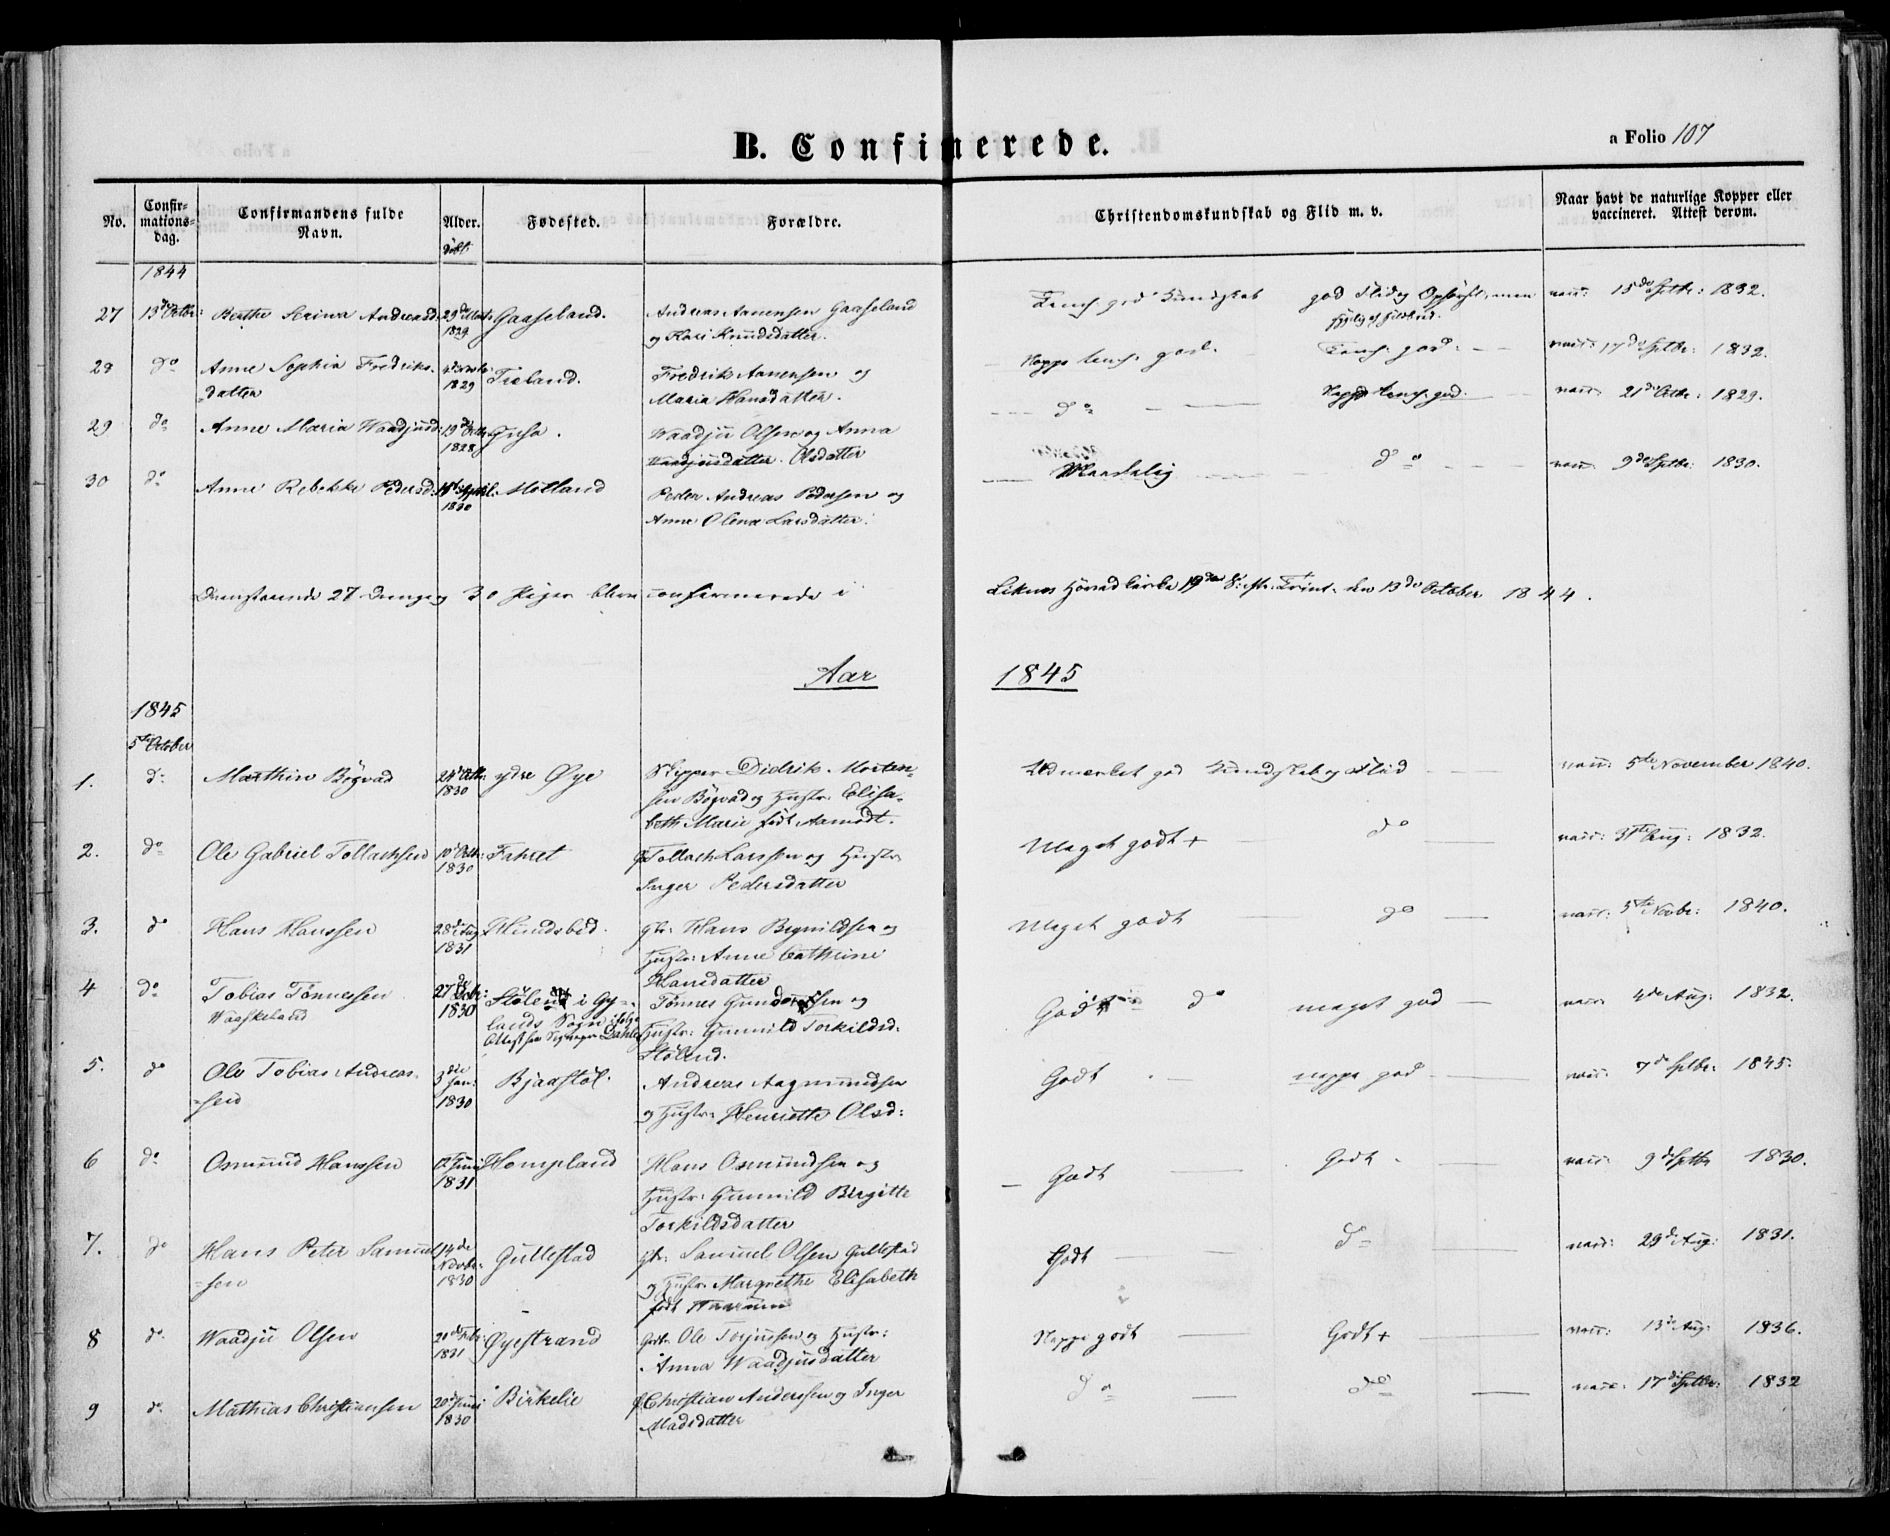 B. Confirmerede.
a Folio 107
No.
Confir-
mations-
dag.
Confirmandens fulde
Navn.
Alder.
Fødested.
Forældre.
Christendomskundskab og Flid m. v.
Naar havt de naturlige Kopper eller
vaccineret. Attest derom.
født
1844
27 13de Octbr: Berthe Serina Andreasd: 1829 Gaaseland. Andreas Aanensen Gaaseland
og Kari Knudsdatter.
Temel: god Kundskab god Flid og Opførsel, men vacc: 15de Septbr: 1832.
28 do Anne Sophia Fredriks- 1829 Træland. Fredrik Aanensen og
datter Maria Hansdatter.
Neppe temel: god. Temel: god. vacc: 17de Septbr: 1832.
29 do Anne Maria Waadjusd: 19de Octbr 1828 Gusa. Waadju Olsen og Anna
Waadjusdatter. Olsdatter
do Neppe temel: god. vacc: 21de Octbr: 1829.
30 do Anne Rebekke Pedersd: April 1830 Mølland Peder Andreas Pedersen og
Anne Olena Larsdatter.
Maadelig do vacc: 9de Septbr: 1830.
Ovenstaaende 27 Drenge og 30 Piger bleve confirmerede i Liknes Hovedkirke 19de S: eftr. Trinit. den 13de October 1844.
Aar 1845
1845
5te October
1. do Marthin Bøgvad 24de Octbr: 1830 ydre Øye Skipper Didrik Morten-
sen Bøgvad og Hustr: Elisa-
beth Marie født Aamodt.
Udmerket god Kundskab og Flid vacc: 5te November 1840.
2. do Ole Gabriel Tollachsen 10de Octbr: 1830 Fahret Tollach Larssen og Hustr:
Inger Pedersdatter
Meget godt + do vacc: 31te Aug: 1832.
3. do Hans Hanssen 28de Aug 1831 Hundsbed. Hans Regnildsen og
Hustr: Anne Cathrine
Hansdatter
Meget godt do vacc: 5te Novbr: 1840.
4 do Tobias Tønnessen 27de 1830 Stølen i Gy-
Waaskeland lands Sogn ifølge
Attest fra Sogneprest Dahle
Tønnes Gundersen og
Hustr: Gunnild Torkildsd:
Stølend.
Godt do meget god vacc: 4de Aug: 1832.
5. do Ole Tobias Andreas- 3die Jan: 1830 Bjaastøl. Andreas Aagmundsen
sen og Hustr: Henriette Olsd:
Godt neppe god vacc: 7de Septbr: 1845.
6 do Osmund Hanssen 12te Juni 1831 Hompland Hans Osmundsen og
Hustr: Gunnild Birgitte
Torkildsdatter
Godt Godt vacc: 9de Septbr 1830.
7. do Hans Peter Samuel 14de Novbr: 1830 Gullestad Samuel Olsen Gullestad
sen og Hustr: Margrethe Elisabeth
født
Godt do vacc: 29de Aug: 1831.
8 do Waadju Olsen 20de Febr: 1831 Øyestrand Ole Torjussen og Hustr:
Anna Waadjusdatter
Neppe godt Godt + vacc: 13de Aug: 1836.
9 do Mathias Christiansen 20de Juni 1830 Birkelie Christian Anderssen og Inger
Madsdatter
do do vacc: 17de Septbr: 1832